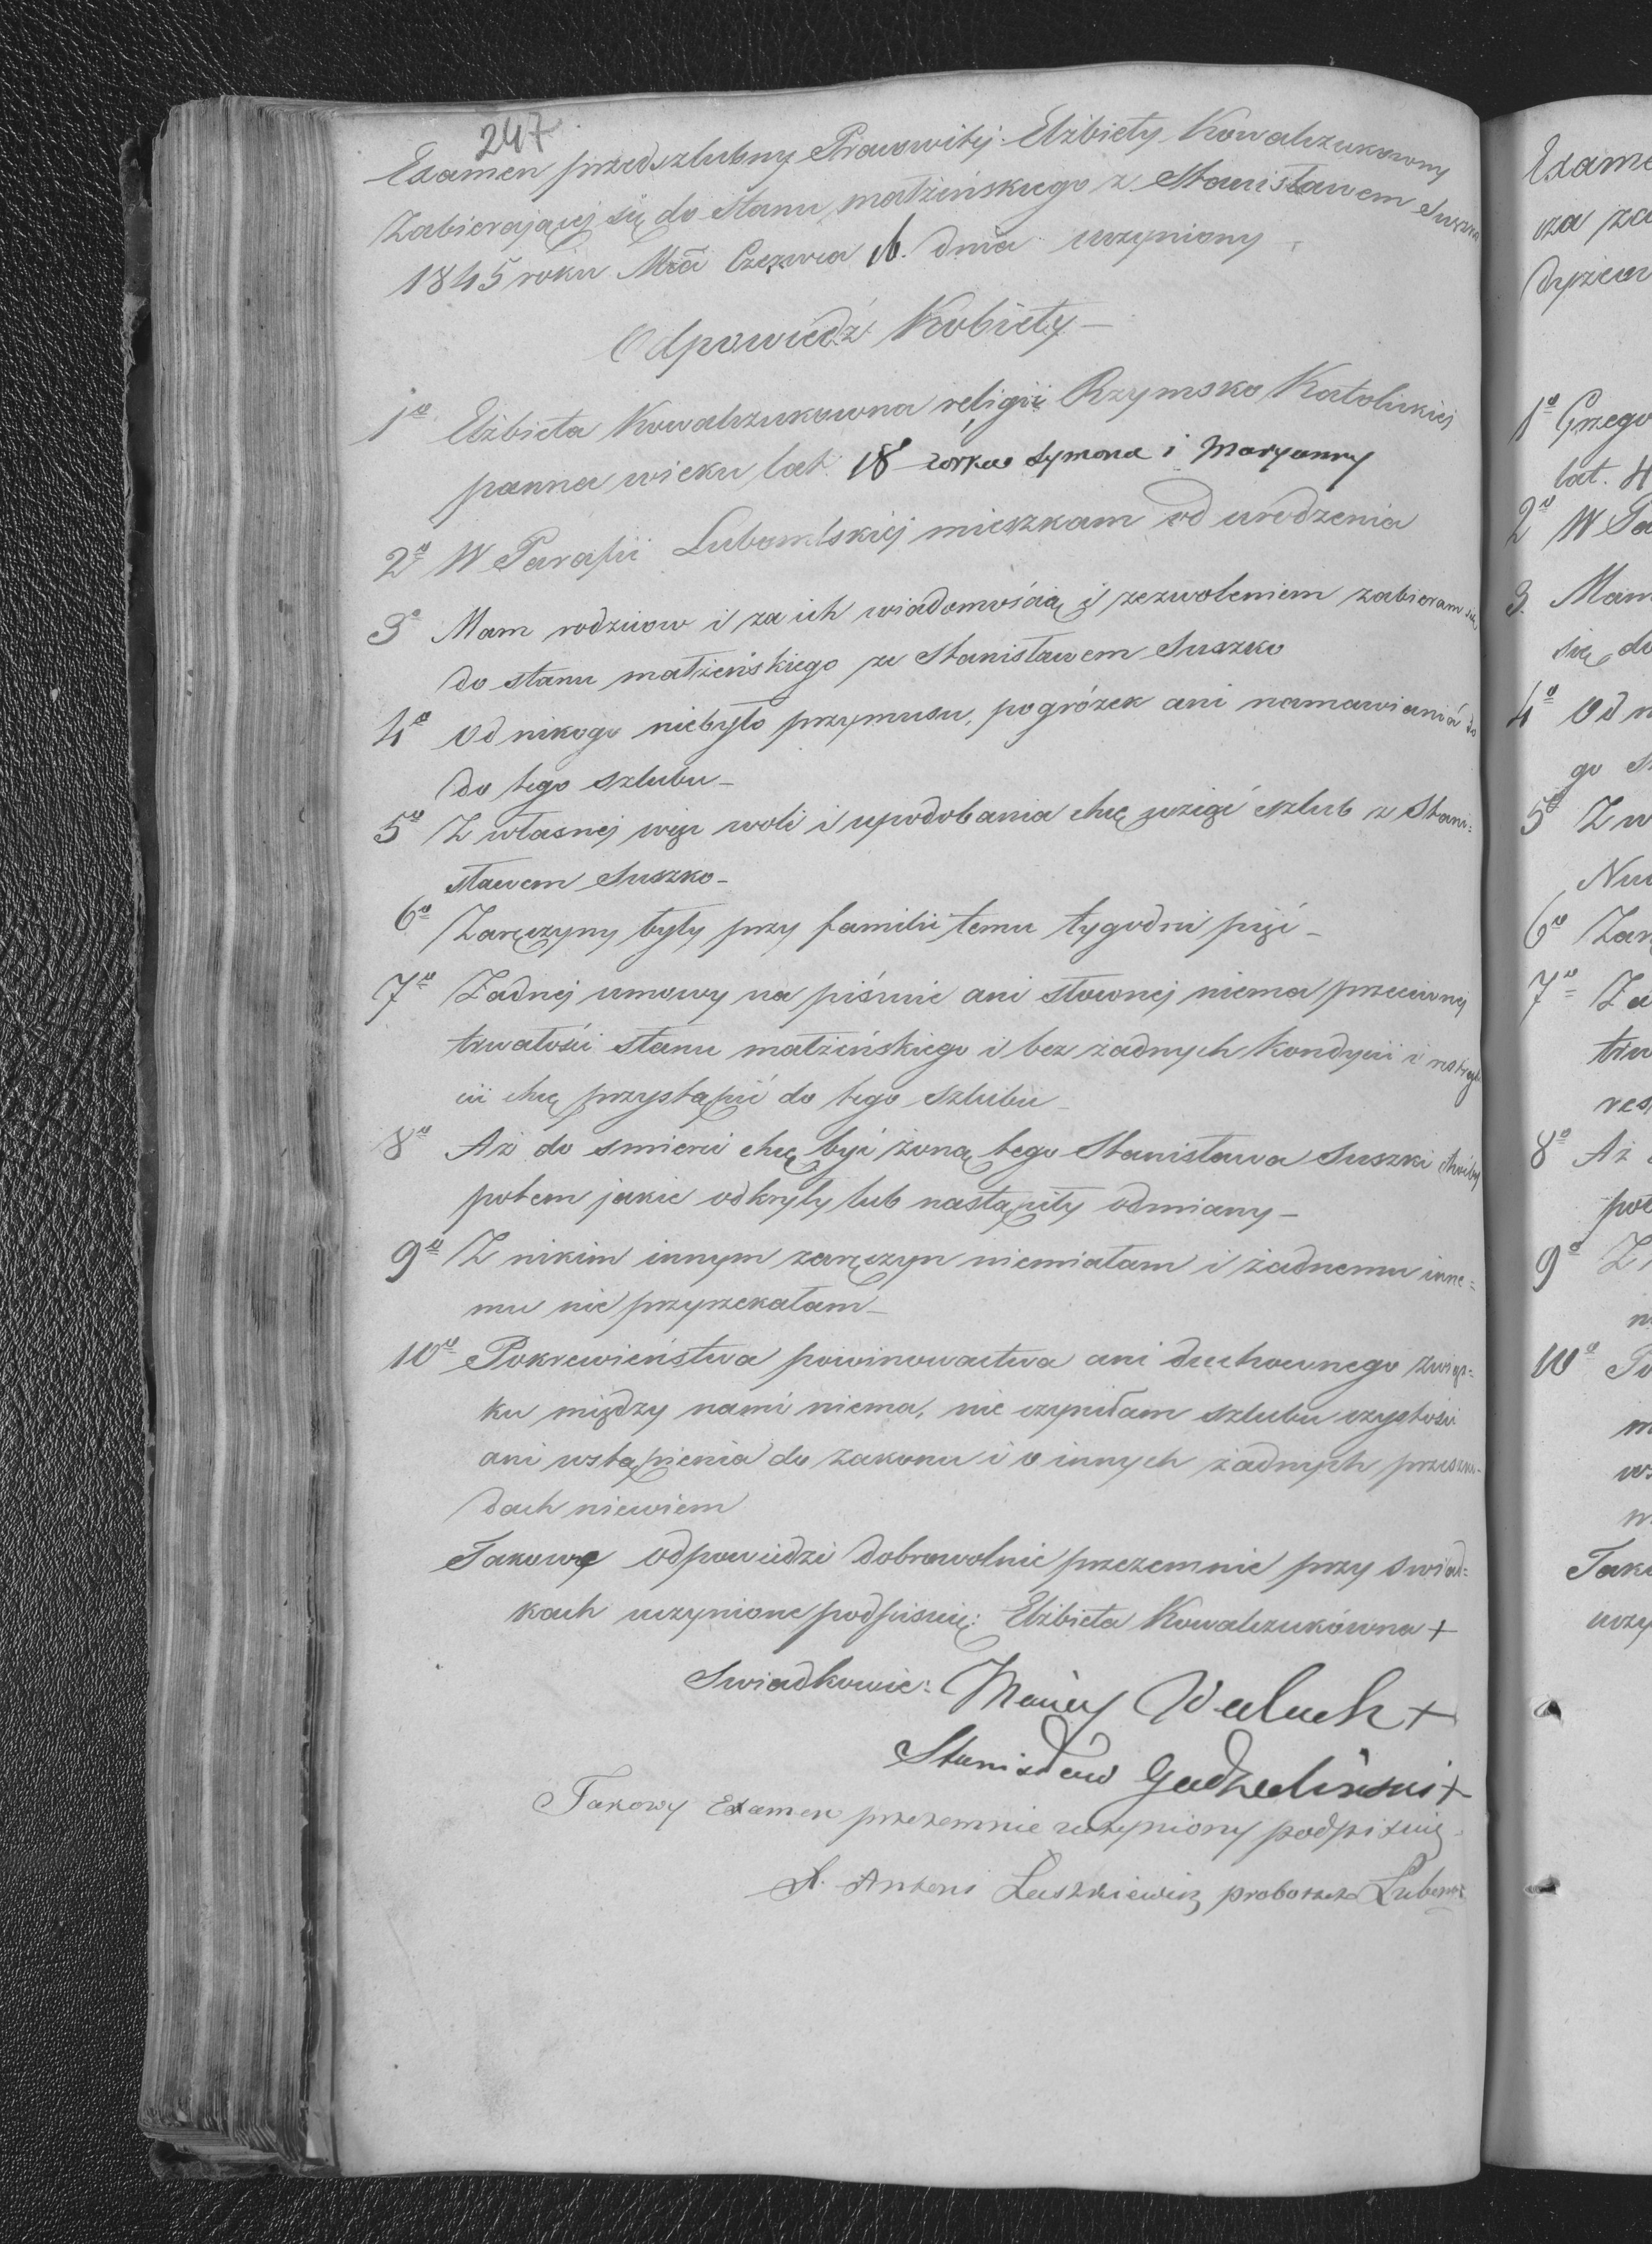 247
Examen przedszlubny Pracowitej Elżbiety Kowalczukowny
Zabierającej się do stanu małżeńskiego z Stanisławem Suszko
1845 roku Mca Czerwca 16. dnia uczyniony
Odpowiedź Kobiety
1o Elżbieta Kowalczukowna religii Rzymsko Katolickiej
panna wieku lat 18 corka Symona i Maryanny
2o W Parafii Lubomlskiej mieszkam od urodzenia
3o Mam rodziców i za ich wiadomością i zezwoleniem zabieram się
do stanu małżeńskiego ze Stanisławem Suszko
4o Od nikogo niebyło przymusu, pogróżek ani namawiania do
do tego szlubu
5o Z własnej więc woli i upodobania chcę wziąć szlub z Stani=
sławem Suszko
6o Zaręczyny były przy familii temu tygodni pięć
7o Żadnej umowy na piśmie ani słownej niema przeciwnej
trwałości stanu małżeńskiego i bez żadnych kondycii i restryk
cii chcę przystąpić do tego szlubu
8o Aż do smierci chcę być żoną tego Stanisława Suszki choćby
potem jakie odkryły lub nastąpiły odmiany
9o Z nikim innym zaręczyn niemiałam i żadnemu inne=
mu nie przyrzekałam
10o Pokrewieństwa powinowactwa ani duchownego związ=
ku między nami niema, nie czyniłam szlubu czystości
ani wstąpienia do zakonu i o innych żadnych przeszko=
dach niewiem
Takowe odpowiedzi dobrowolnie przezemnie przy swiad=
kach uczynione podpisuię: Elżbieta Kowalczukówna +
Swiadkowie: Maciey Waluch +
Stanisław Gadzaliński +
Takowy Examen przezemnie uczyniony podpisuię
X. Antoni Laszkiewicz proboszcz Lubom:
Exame
cza za
dyzew
1o Grzego
lat. 4
2o W Pa
3. Mam
się do
4o Od n
go s
5o Z w
6o Zar
7o Ża
trw
res
8o Aż
pot
9o Z
10o Po
Tako
uczy